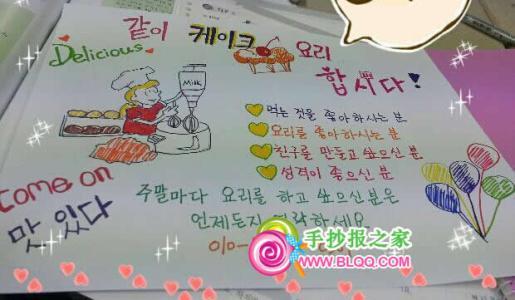 같이 케이크 요리 합시다!
Delicious
Milk
먹는 것을 좋아하시는 분
요리를 좋아하시는 분
친구를 만들고 싶으신 분
성격이 좋으신 분
come on
맛있다
주말마다 요리를 하고 싶으신분은
언제든지 하세요
010-
手抄报之家
www.BLQQ.com